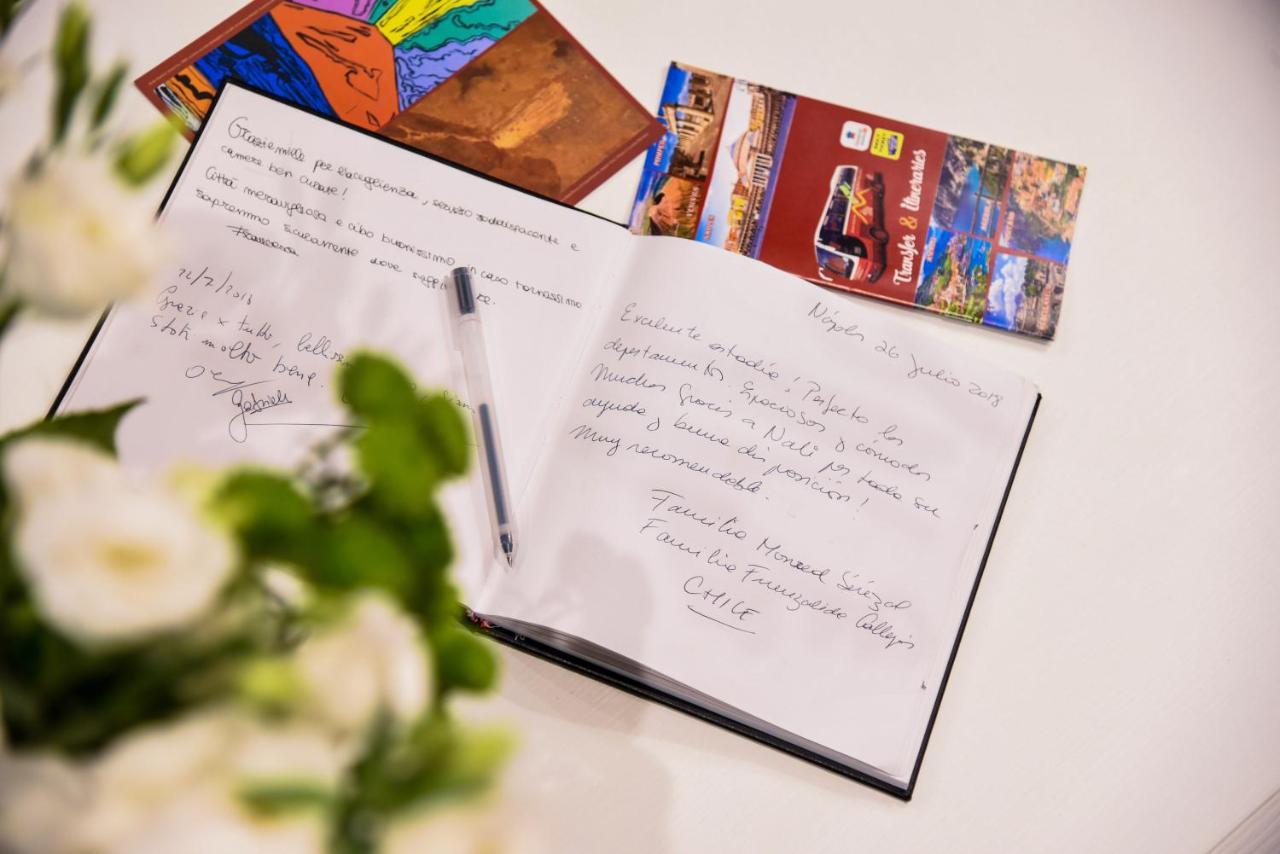 Grazie mille per l'accoglienza, servizio soddisfacente e
camere ben curate!
Città meravigliosa e cibo buonissimo in caso tornassimo
sapremmo sicuramente dove
Francesca
12/7/2018
Grazie x tutto,
stati molto bene.
Gabriele
Nápoles 26 Julio 2018
Excelente estadía! Perfecto los
departamentos. Espaciosos y cómodos
Muchas Gracias a Nali por toda su
ayuda y buena disposición!
Muy recomendable.
Familia Monred
Familia Fuenzalida Callejas
CHILE
Transfer & Itineraries
POMPEI